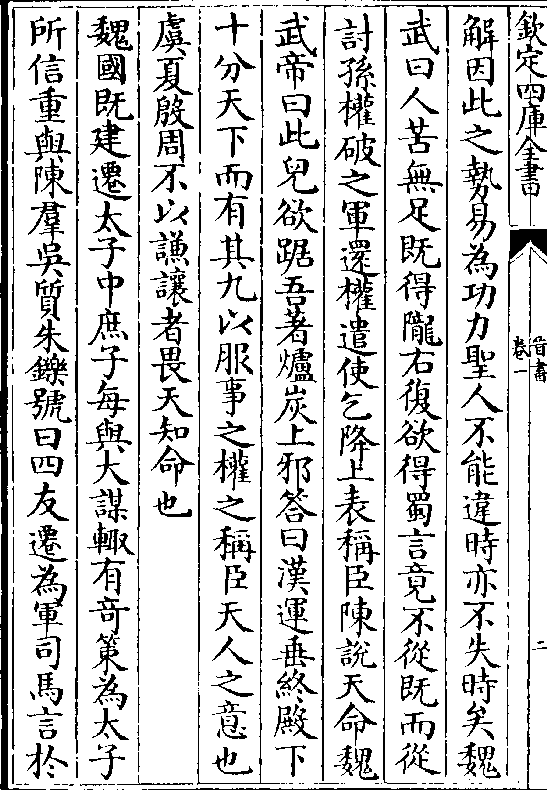 欽定四庫全書
晉書
卷一
二
解因此之勢易為功力聖人不能違時亦不失時矣魏
武曰人苦無足既得隴右復欲得蜀言竟不從既而從
討孫權破之軍還權遣使乞降上表稱臣陳說天命魏
武帝曰此兒欲踞吾著爐炭上邪答曰漢運垂終殿下
十分天下而有其九以服事之權之稱臣天人之意也
虞夏殷周不以謙讓者畏天知命也
魏國既建遷太子中庶子每與大謀輙有竒策為太子
所信重與陳羣吳質朱鑠號曰四友遷為軍司馬言於